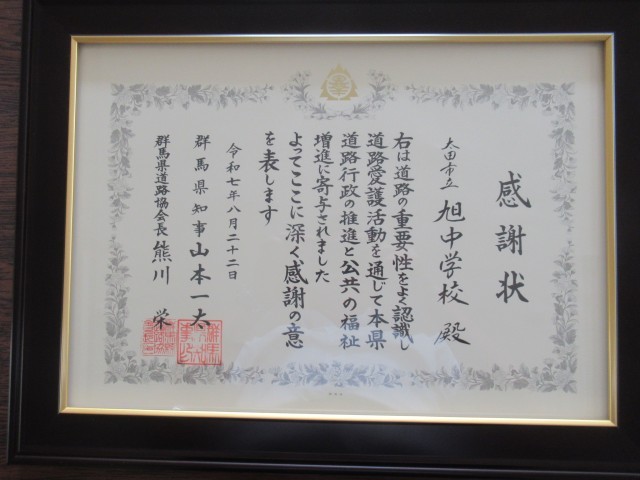 感謝状
太田市立 旭中学校 殿
右は道路の重要性をよく認識し
道路愛護活動を通じて本県
道路行政の推進と公共の福祉
増進に寄与されました
よってここに深く感謝の意
を表します
令和七年八月二十二日
群馬県知事 山本一太
群馬県道路協会長 熊川 栄